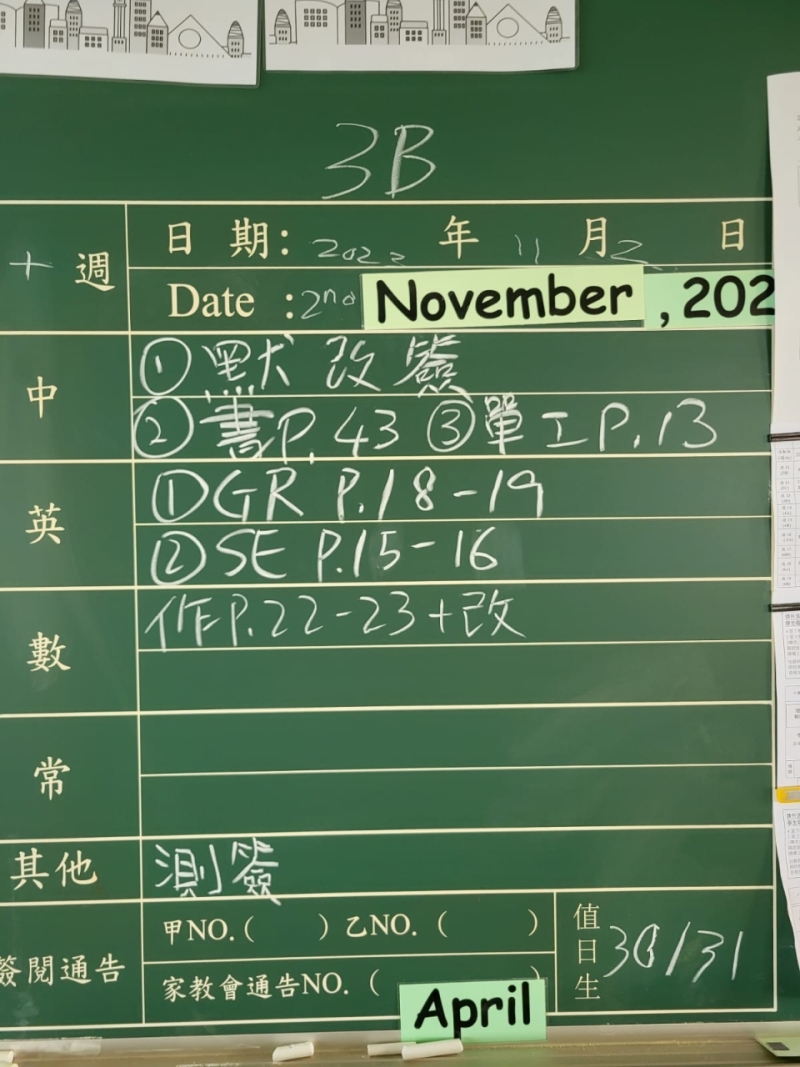 3B
十 週
日 期: 2022 年 11 月 2 日
Date : 2nd November , 202
中
① 默 改 簽
② 書 P. 43 ③ 單工 P. 13
英
① GR P.18-19
② SE P.15-16
數
作 P.22-23+改
常
其他
測 簽
簽閱通告
甲NO. ( ) 乙NO. ( )
家教會通告NO. ( )
April
值日生
30/31